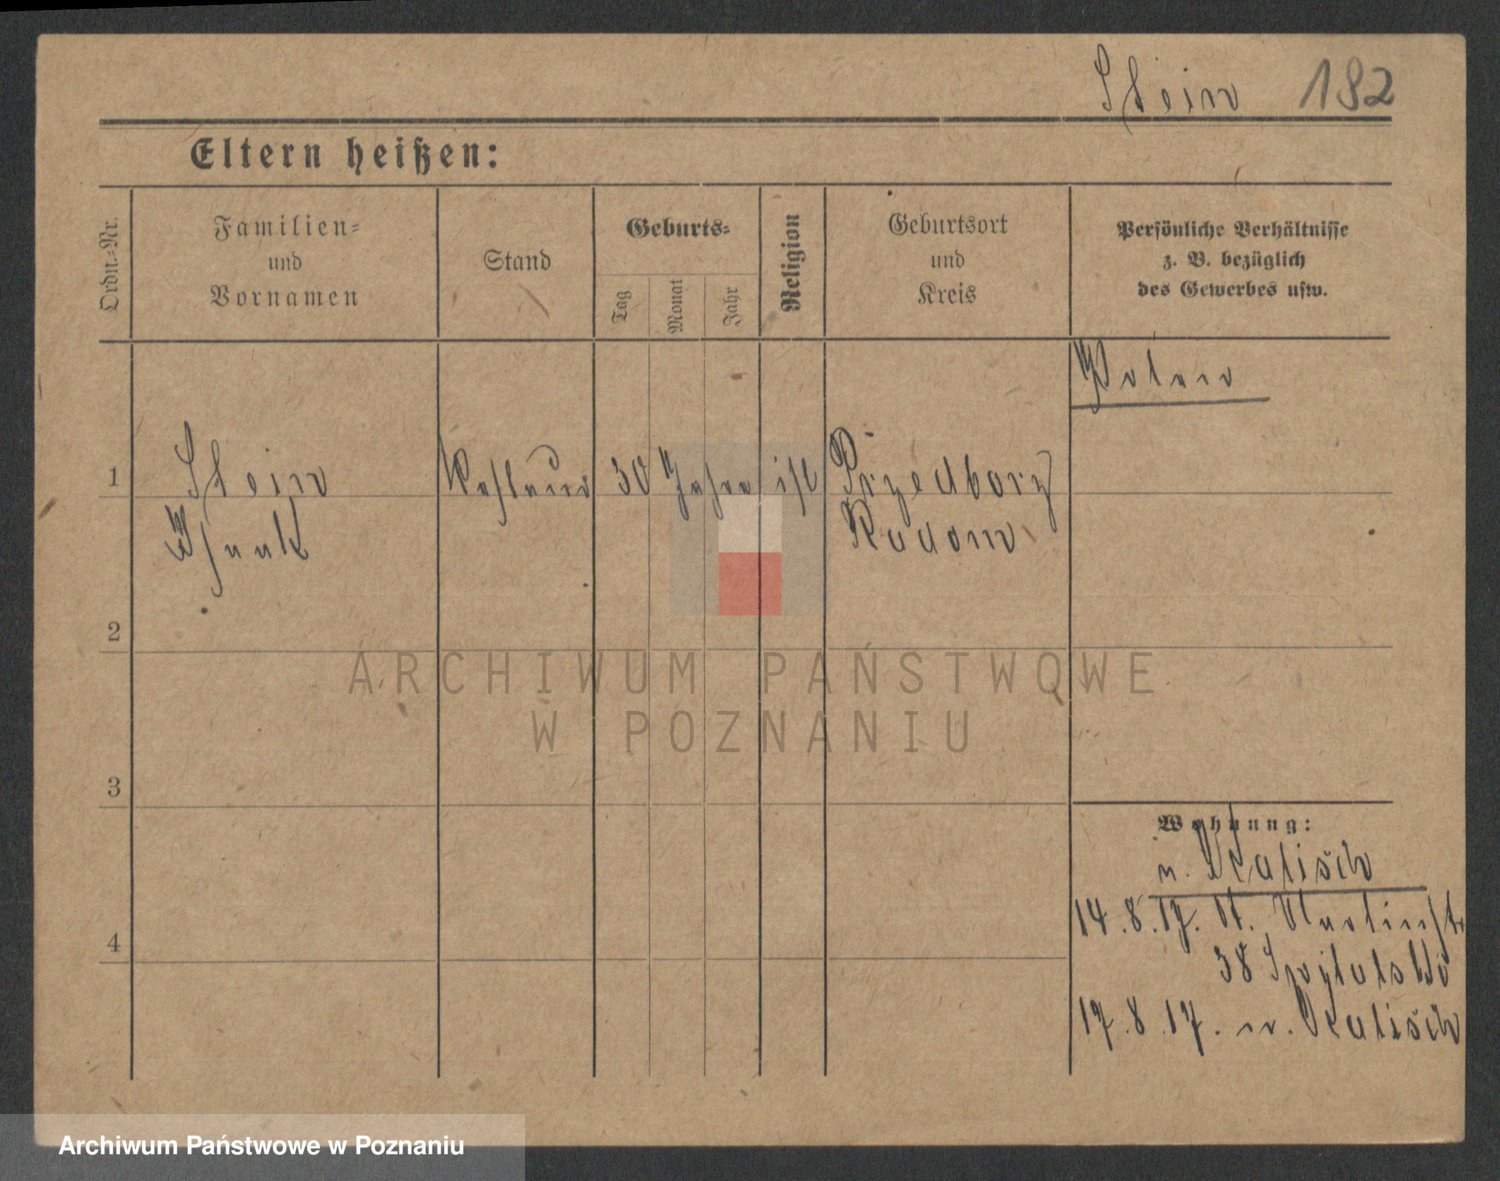 Stein 182
Eltern heißen:
Ordn.-Nr.
Familien=
und
Vornamen
Stand
Geburts=
Tag
Monat
Jahr
Religion
Geburtsort
und
Kreis
Persönliche Verhältnisse
z. B. bezüglich
des Gewerbes usw.
Polen
1
Stein
Isaak
30 Jahre
Przedborz
Radom
2
3
4
Wohnung:
n. Kalisch
14.8.17. St. Martinstr
38
17.8.17. n. Kalisch
ARCHIWUM PAŃSTWOWE
W POZNANIU
Archiwum Państwowe w Poznaniu